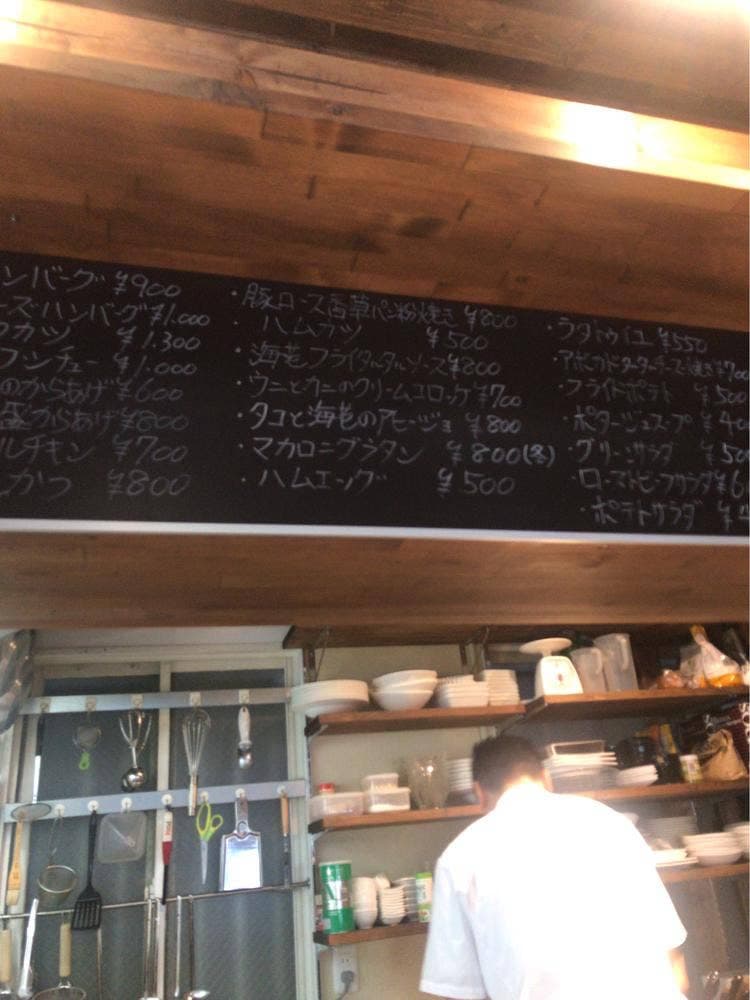 ンバーグ ¥900
ーズハンバーグ ¥1.000
カツ ¥1.300
フシチュー ¥1.000
のからあげ ¥600
盛からあげ ¥800
ルチキン ¥700
かつ ¥800
・豚ロース香草パン粉焼き ¥800
・ハムカツ ¥500
・海老フライタルタルソース ¥800
・ウニとカニのクリームコロッケ ¥700
・タコと海老のアヒージョ ¥800
・マカロニグラタン ¥800(冬)
・ハムエッグ ¥500
・ラタトゥイユ ¥550
・アボカド チーズ焼き ¥700
・フライドポテト ¥500
・ポタージュスープ ¥40
・グリーンサラダ ¥50
・ローストビーフサラダ ¥6
・ポテトサラダ ¥4